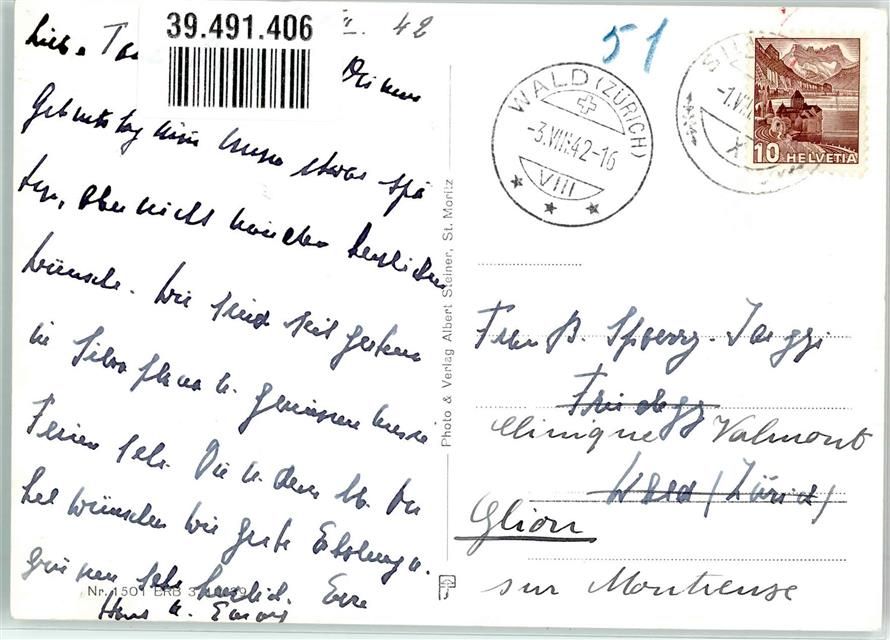 39.491.406
II. 42
Liebe
Deinen
Geburtstag etwas spä
ten, aber nicht minder herzlichen
Wünsche. Wir sind seit gestern
in Silvaplana u. geniessen unsere
Ferien sehr. Dir u. dem lb. On
kel wünschen wir gute Erholung u.
grüssen sehr herzlich. Eure
Hans u.
Nr. 1501
Photo & Verlag Albert Steiner, St. Moritz
51
WALD (ZÜRICH)
-3.VIII.42-16
VIII
SIL
-1.VII
10 HELVETIA
Frau B. Spoerry-Jaeggi
Friedegg
Clinique Valmont
Wald (Zürich)
Glion
sur Montreuse